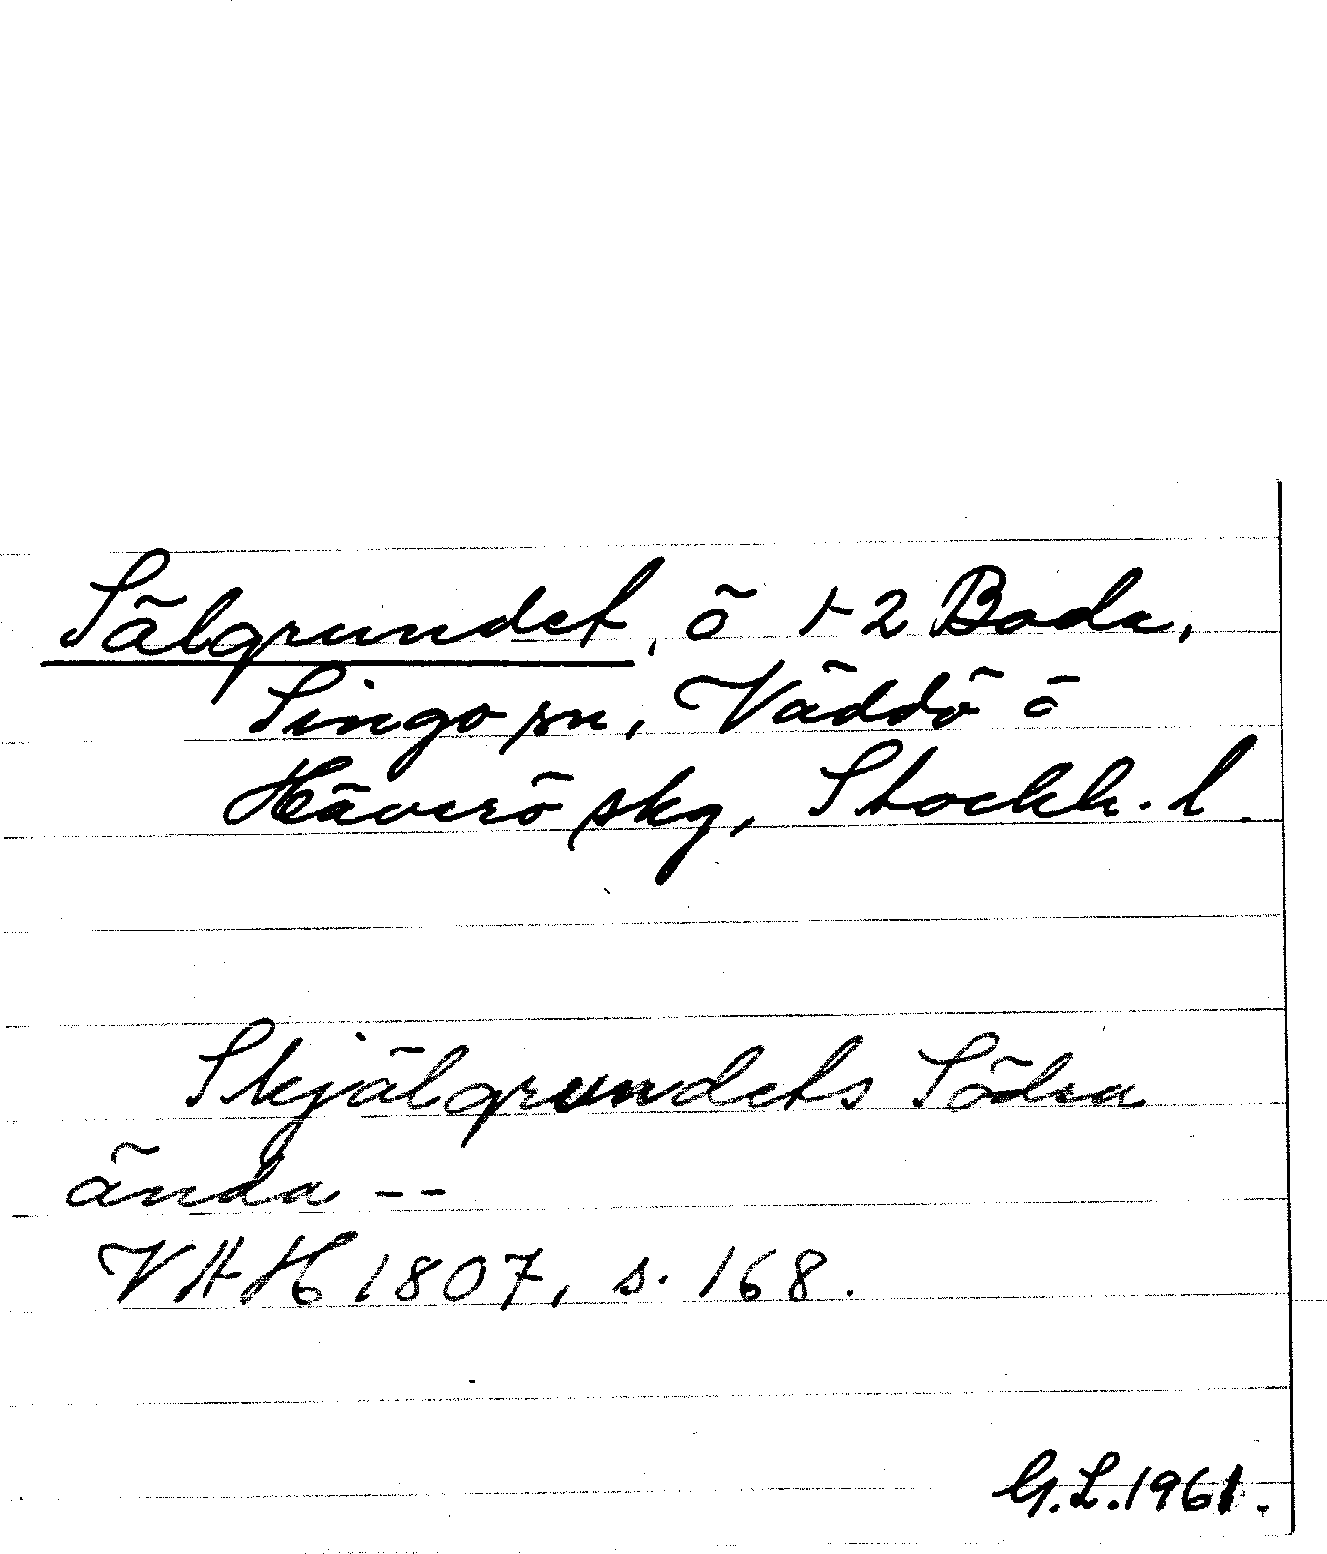 Sälgrundet, ö t 2 Boda,
Singo sn, Väddö ö
Häverö skg, Stockh. l.
Skjälgrundets Södra
ända --
VAH 1807, s. 168.
G.L. 1961.